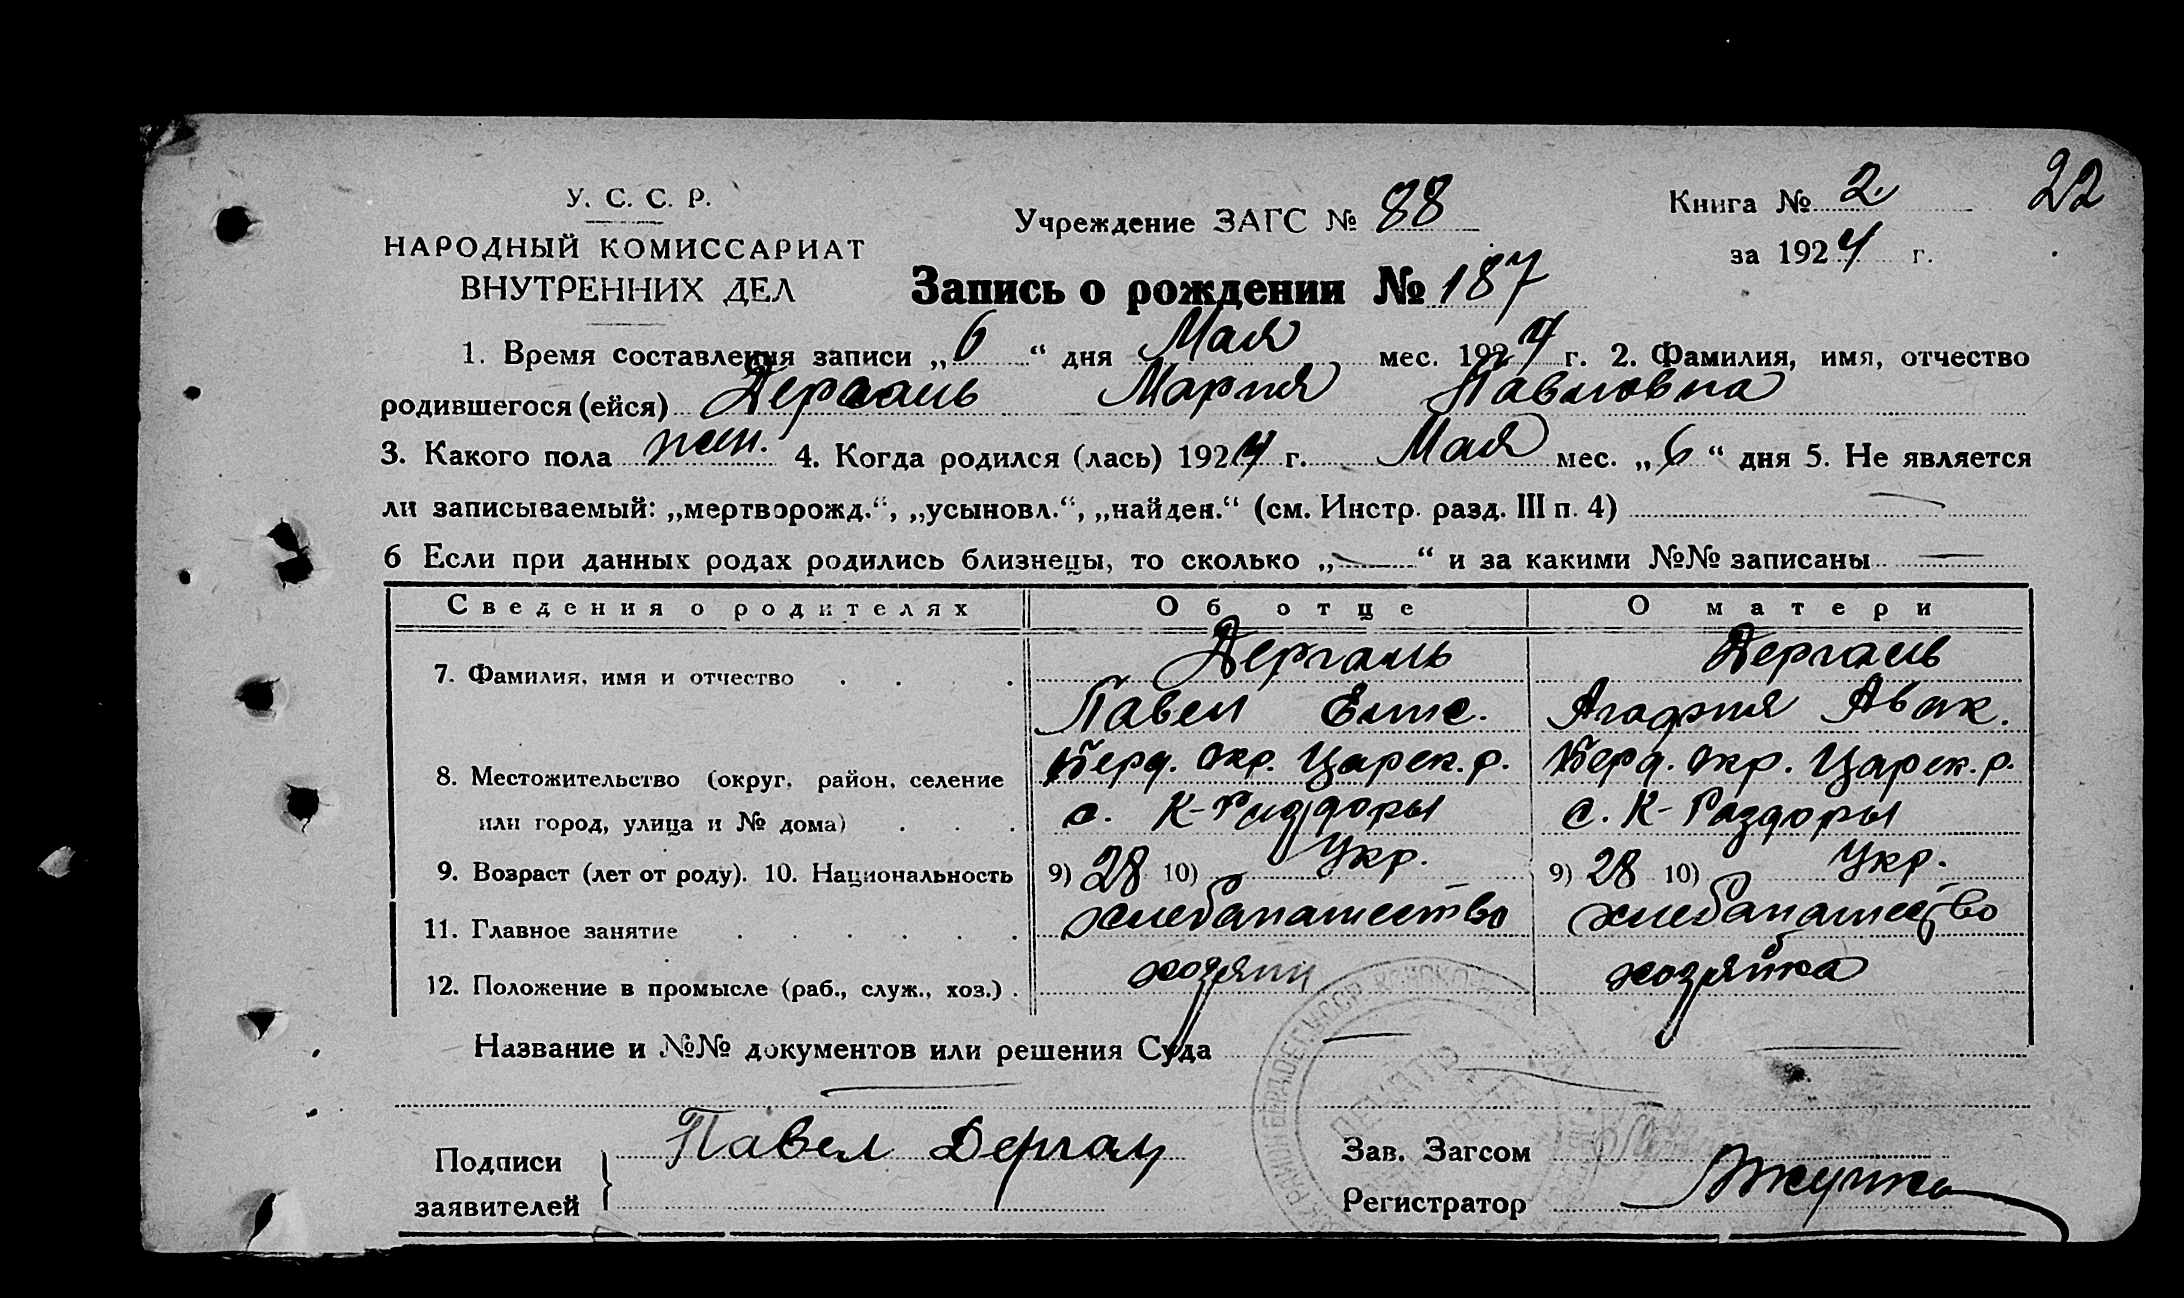 22
У. С. С. Р.
НАРОДНЫЙ КОМИССАРИАТ
ВНУТРЕННИХ ДЕЛ
Учреждение ЗАГС № 88
Книга № 2
за 1924 г.
Запись о рождении № 187
1. Время составления записи „6“ дня Мая мес. 1924 г. 2. Фамилия, имя, отчество
родившегося (ейся) Дергаль Мария Павловна
3. Какого пола жен. 4. Когда родился (лась) 1924 г. Мая мес. „6“ дня 5. Не является
ли записываемый: „мертворожд.“, „усыновл.“, „найден.“ (см. Инстр. разд. III п. 4) —
6 Если при данных родах родились близнецы, то сколько „—“ и за какими №№ записаны —
Сведения о родителях Об отце О матери
7. Фамилия, имя и отчество Дергаль Дергаль
Павел Елис. Агафия Авак.
8. Местожительство (округ, район, селение Берд. окр. Царек. р. Берд. окр. Царек. р.
или город, улица и № дома) с. К-Раздоры с. К-Раздоры
9. Возраст (лет от роду). 10. Национальность 9) 28 10) Укр. 9) 28 10) Укр.
11. Главное занятие хлебапашество хлебапашество
12. Положение в промысле (раб., служ., хоз.) хозяин хозяйка
Название и №№ документов или решения Суда —
Подписи Павел Дергал
заявителей
Зав. Загсом
Регистратор